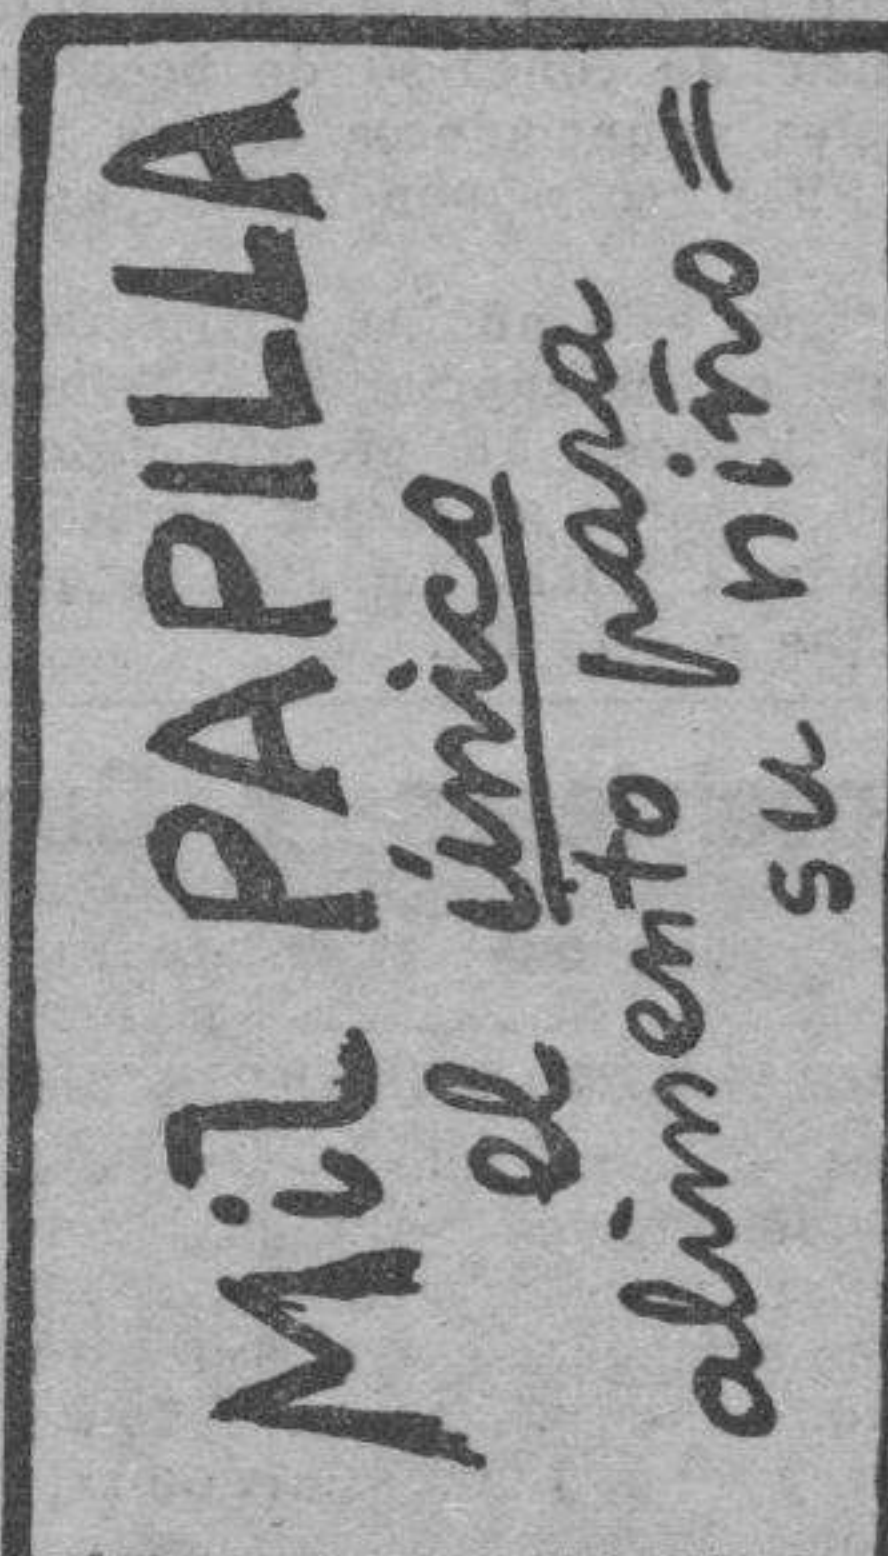 Mil PAPILLA
el único
alimento para
su niño =